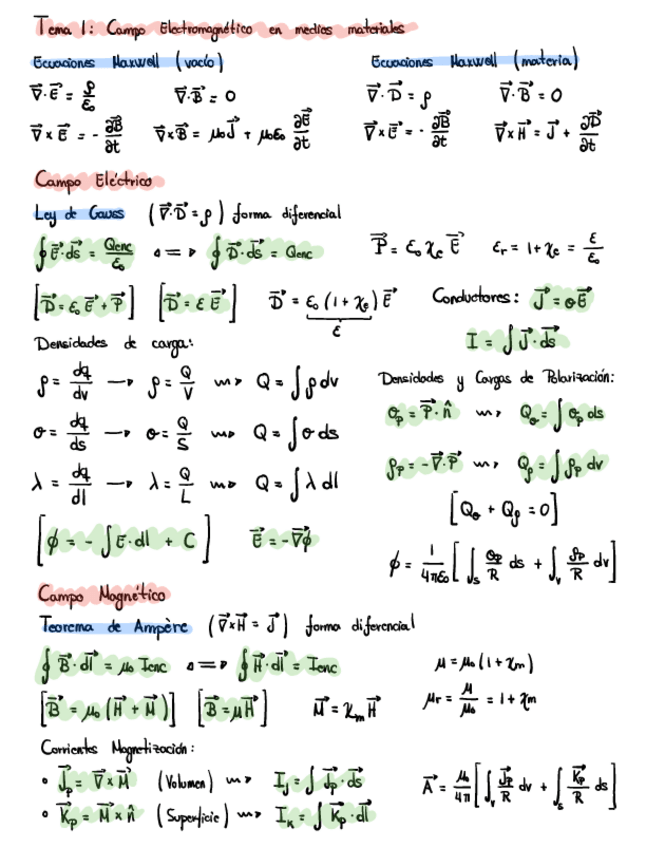 Tema 1: Campo Electromagnético en medios materiales
Ecuaciones Maxwell (vacío)
Ecuaciones Maxwell (materia)
∇⃗·E⃗ = ρ/ε₀
∇⃗·B⃗ = 0
∇⃗·D⃗ = ρ
∇⃗·B⃗ = 0
∇⃗×E⃗ = - ∂B⃗/∂t
∇⃗×B⃗ = μ₀J⃗ + μ₀ε₀ ∂E⃗/∂t
∇⃗×E⃗ = - ∂B⃗/∂t
∇⃗×H⃗ = J⃗ + ∂D⃗/∂t
Campo Eléctrico
Ley de Gauss (∇⃗·D⃗ = ρ) forma diferencial
∮E⃗·ds⃗ = Qenc/ε₀ <=> ∮D⃗·ds⃗ = Qenc
P⃗ = ε₀ χe E⃗
εr = 1 + χe = ε/ε₀
[D⃗ = ε₀E⃗ + P⃗] [D⃗ = εE⃗] D⃗ = ε₀(1 + χe)E⃗
ε
Conductores: J⃗ = σE⃗
I = ∫J⃗·ds⃗
Densidades de carga:
ρ = dq/dv → ρ = Q/V ⇝ Q = ∫ρdv
σ = dq/ds → σ = Q/S ⇝ Q = ∫σds
λ = dq/dl → λ = Q/L ⇝ Q = ∫λdl
[ϕ = - ∫E·dl + C] E⃗ = -∇⃗ϕ
Densidades y Cargas de Polarización:
σp = P⃗·n̂ ⇝ Qσ = ∫σp ds
ρp = -∇⃗·P⃗ ⇝ Qρ = ∫ρp dv
[Qσ + Qρ = 0]
ϕ = 1/4πε₀ [∫s σp/R ds + ∫v ρp/R dv]
Campo Magnético
Teorema de Ampère (∇⃗×H⃗ = J⃗) forma diferencial
∮B⃗·dl⃗ = μ₀ Ienc <=> ∮H⃗·dl⃗ = Ienc
μ = μ₀(1 + χm)
[B⃗ = μ₀(H⃗ + M⃗)] [B⃗ = μH⃗] M⃗ = χm H⃗
μr = μ/μ₀ = 1 + χm
Corrientes Magnetización:
• J⃗p = ∇⃗×M⃗ (Volumen) ⇝ Ij = ∫J⃗p·ds⃗
• K⃗p = M⃗×n̂ (Superficie) ⇝ Ik = ∫K⃗p·dl⃗
A⃗ = μ₀/4π [∫v J⃗p/R dv + ∫s K⃗p/R ds]